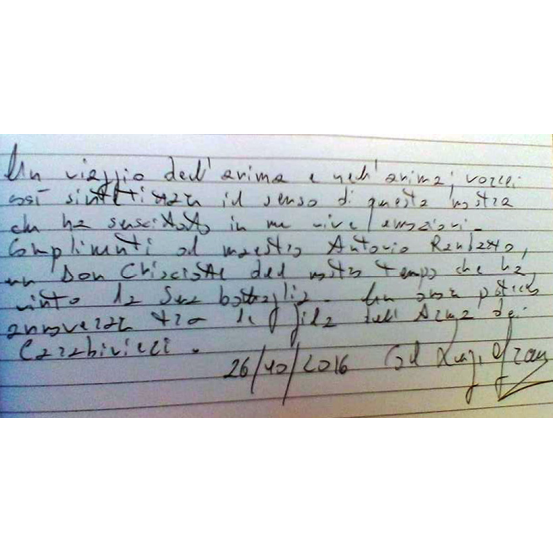 Un viaggio dell'anima e nell'anima, vorrei
così sintetizzare il senso di questa mostra
che ha suscitato in me vive emozioni.
Complimenti al maestro Antonio
un Don Chisciotte del nostro tempo che ha
vinto la sua battaglia. Un
annoverare tra le fila dell'Arma dei
Carabinieri.
26/10/2016 Col